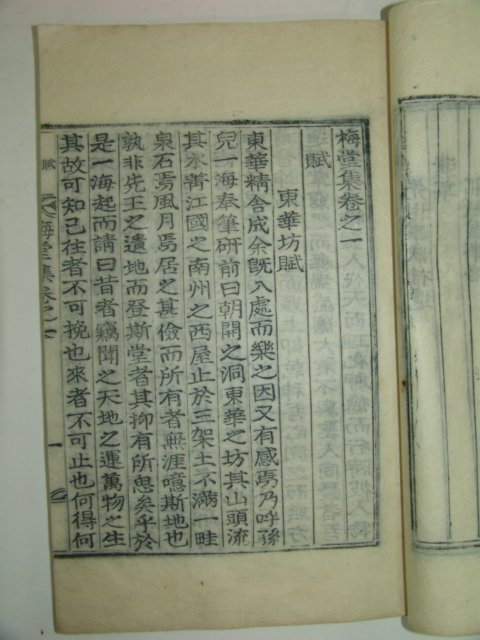 梅堂集卷之一
賦
東華坊賦
東華精舍成余旣入處而樂之因又有感焉乃呼孫
兒一海奉筆硯前曰朝開之洞東華之坊其山頭流
其水菁江國之南州之西屋止於三架土不滿一畦
泉石焉風月焉居之甚儉而所有者無涯噫斯地也
孰非先王之遺地而登斯堂者其抑有所思矣乎於
是一海起而請曰昔者竊聞之天地之運萬物之生
其故可知已往者不可挽也來者不可止也何得何
賦
梅堂集卷之一
一